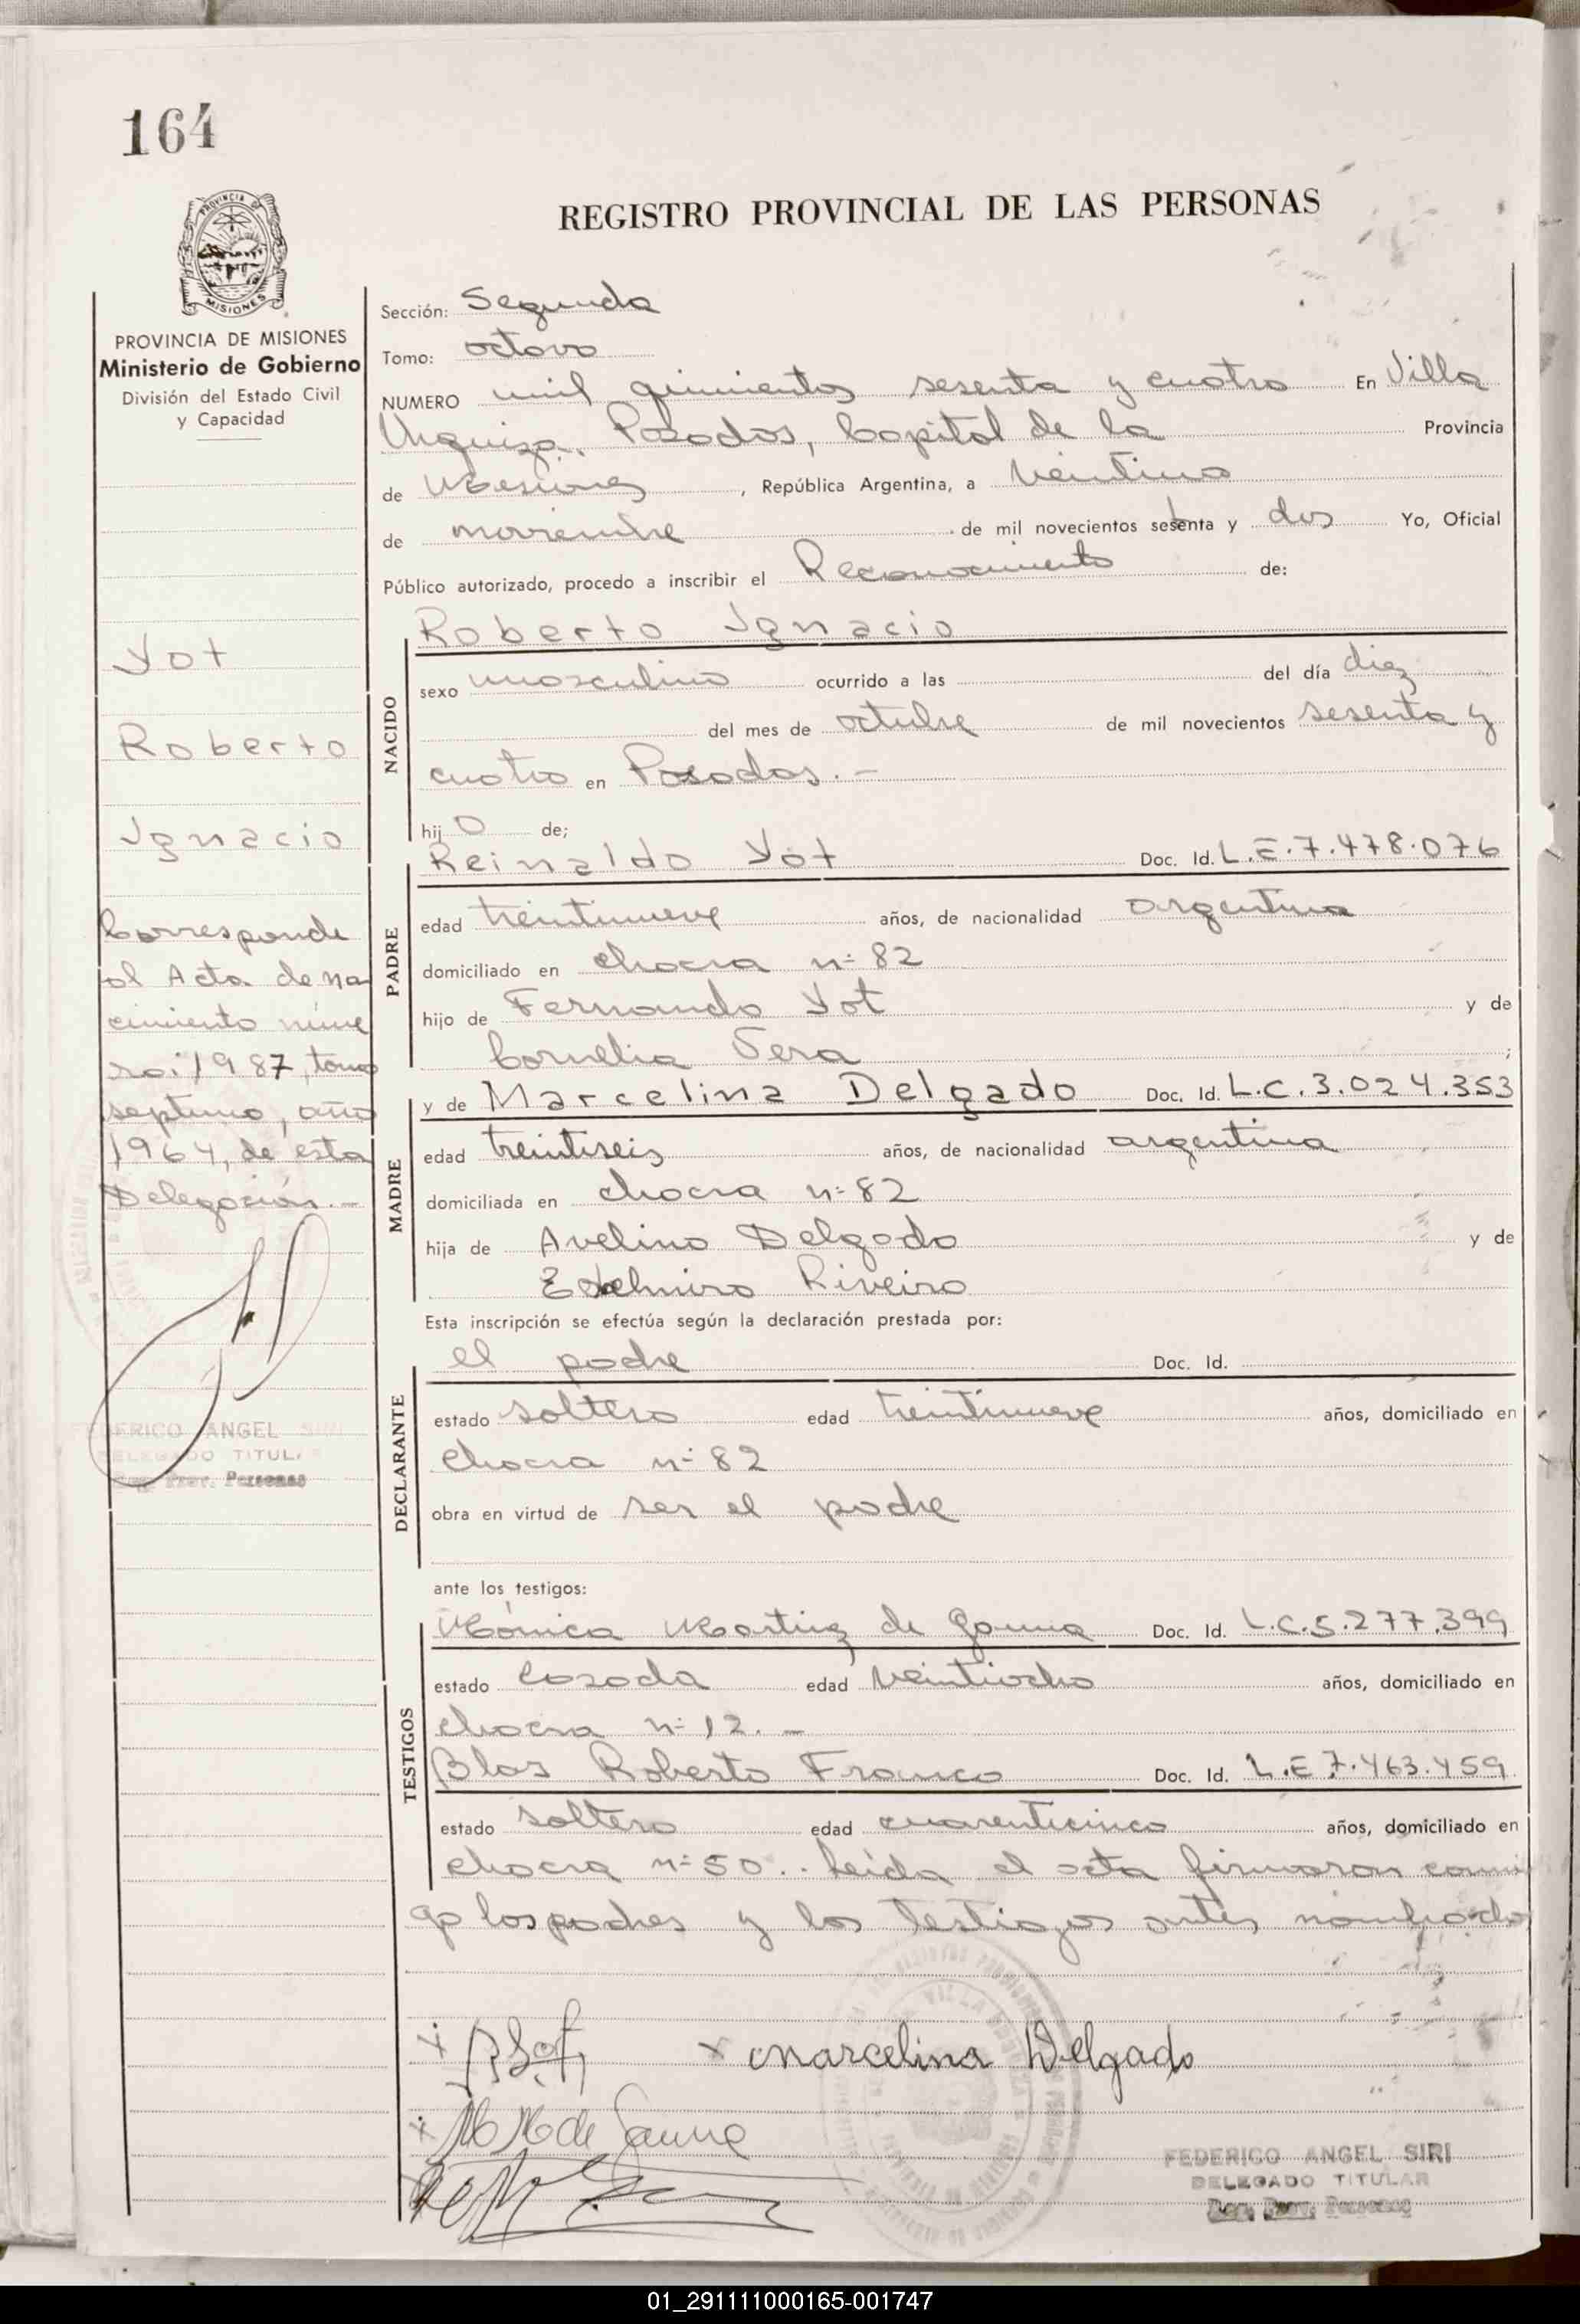 164
REGISTRO PROVINCIAL DE LAS PERSONAS
PROVINCIA DE MISIONES
Ministerio de Gobierno
División del Estado Civil
y Capacidad
Yot
Roberto
Ignacio
Corresponde
al Acta de na
cimiento núme
ro: 1987, tomo
septimo, año
1964, de esta
Delegación.-
FEDERICO ANGEL SIRI
DELEGADO TITULAR
Reg. Prov. Personas
Sección: Segunda
Tomo: octavo
NUMERO mil quinientos sesenta y cuatro En Villa
Urquiza, Posadas, Capital de la Provincia
de Misiones, República Argentina, a veintiuno
de noviembre de mil novecientos setenta y dos Yo, Oficial
Público autorizado, procedo a inscribir el Reconocimiento de:
NACIDO
Roberto Ignacio
sexo masculino ocurrido a las del día diez
del mes de octubre de mil novecientos sesenta y
cuatro en Posadas.-
hijo de;
PADRE
Reinaldo Yot Doc. Id. L.E.7.478.076
edad treintinueve años, de nacionalidad argentina
domiciliado en chacra n: 82
hijo de Fernando Yot y de
Cornelia Sera;
MADRE
y de Marcelina Delgado Doc. Id. L.C.3.024.353
edad treintiseis años, de nacionalidad argentina
domiciliada en chacra n: 82
hija de Avelino Delgado y de
Edelmira Riveiro
Esta inscripción se efectúa según la declaración prestada por:
DECLARANTE
el padre Doc. Id.
estado soltero edad treintinueve años, domiciliado en
chacra n: 82
obra en virtud de ser el padre
ante los testigos:
TESTIGOS
Mónica Martinez de Gauna Doc. Id. L.C.5.277.399
estado casada edad veintiocho años, domiciliado en
chacra n: 12.-
Blas Roberto Franco Doc. Id. L.E.7.463.459
estado soltero edad cuarenticinco años, domiciliado en
chacra n: 50.. Leída el acta firmaron conmi
go los padres y los testigos antes nombrados
x x Marcelina Delgado
x M M de Gauna
FEDERICO ANGEL SIRI
DELEGADO TITULAR
Reg. Prov. Personas
01_291111000165-001747